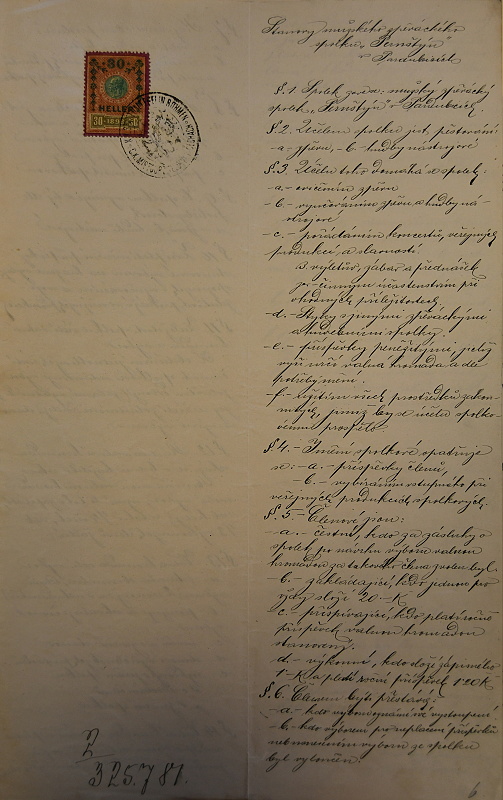 30
HELLER
30 1898 30
Stanovy mužského zpěváckého
spolku „Pernštýn"
v Pardubicích
§. 1. Spolek zove: mužský zpěvácký
spolek „Pernštýn" v Pardubicích.
§. 2. Účelem spolku jest pěstování
-a- zpěvu, -b- hudby nástrojové
§. 3. Účelu toho domáhá se spolek:
-a- cvičením zpěvu
-b- vyučováním zpěvu a hudby ná-
strojové
-c- pořádáním koncertů, veřejných
produkcí, a slavností.
a výletův, zábav a přednášek
účastenstvím při
vhodných příležitostech
-d- Styky s jinými zpěváckými
a hudebními spolky.
-e- příspěvky peněžitými, jichž
výši určí valná hromada a dle
potřeby mění.
-f- užitím všech prostředků zákon-
ných, jimiž by se účelu spolko-
vému prospělo
§ 4.- Jmění spolkové opatřuje
se: -a- příspěvky členů,
b.- vybíráním vstupného při
veřejných produkcích spolkových.
§. 5.- Členové jsou:
-a- čestní, kdo za zásluhy o
spolek po návrhu výboru valnou
hromadou za takového člena zvolen byl.
b.- zakládající, kdo jednou pro
vždy složí 20.-K
c.- přispívající, kdo platí ročně
příspěvek valnou hromadou
stanovený.
d.- výkonní, kdo složí zápisného
1-K a platí roční příspěvek 1·20 K
§. 6. Členem býti přestává:
-a- kdo výboru oznámí své vystoupení
-b- kdo výborem pro neplacení příspěvků
neb usnesením výboru ze spolku
byl vyloučen.
2
325.781.
6